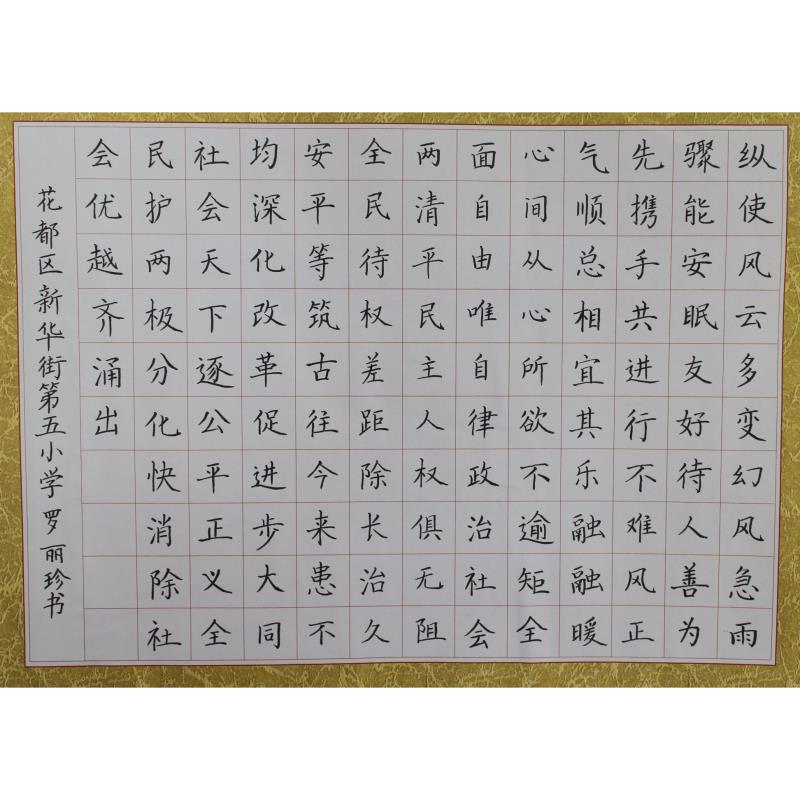 纵使风云多变幻风急雨
骤能安眠友好待人善为
先携手共进行不难风正
气顺总相宜其乐融融暖
心间从心所欲不逾矩全
面自由唯自律政治社会
两清平民主人权俱无阻
全民待权差距除长治久
安平等筑古往今来患不
均深化改革促进步大同
社会天下逐公平正义全
民护两极分化快消除社
会优越齐涌出
花都区新华街第五小学罗丽珍书